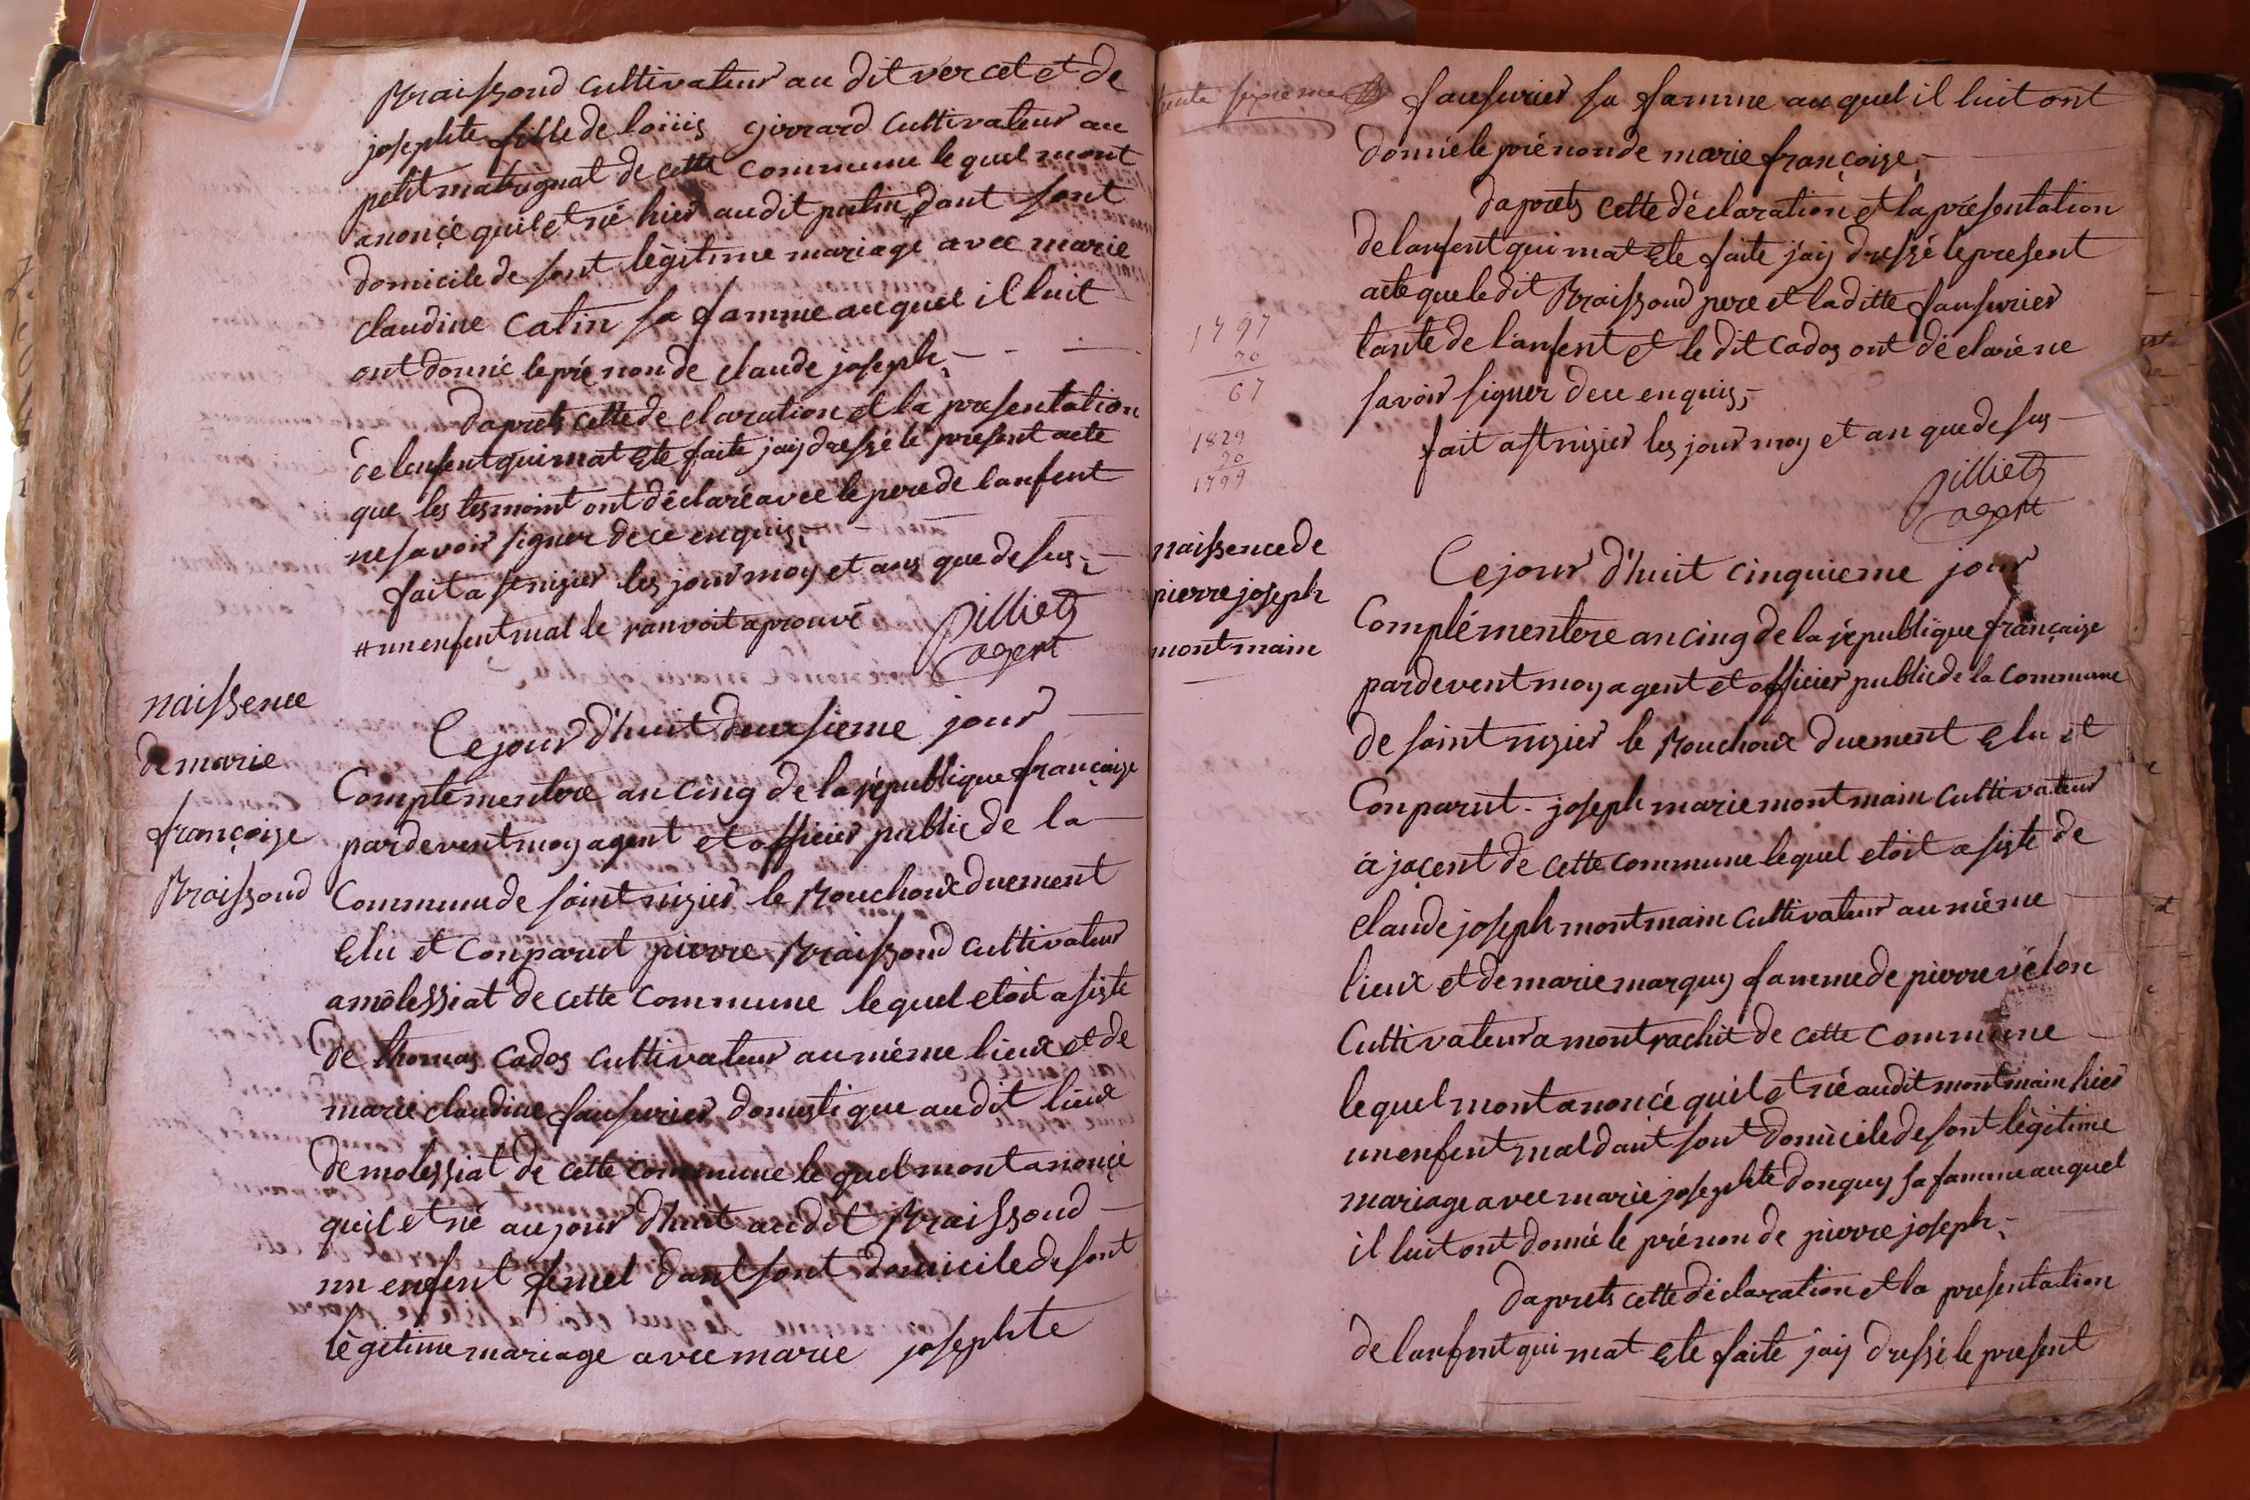 Braissoud cultivateur au dit vercet et de
josephte fille de loüis girrard cultivateur au
petit matrignat de cette commune le quel mont
anoncé quil et né hier audit putin dant sont
domicile de sont lègitime mariage avec marie
claudine catin sa famme au quel il luit
ont donné le pré non de claude joseph,
daprets cette de claration et la presentation
de lenfent qui mat ete faite jaij dressé le present acte
que les tesmoint ont déclaré avec le pere de lanfent
ne savoir signer de ce enquis,
fait a st nizier les jour moy et ans que de sus,
# un enfent mal le ranvoit aprouvé
Pilliet
agent
naissence
de marie
françoise
Braissoud
Ce jour d'huit deuxsieme jour
Complementere an cinq de la république françaize
par devent moy agent et officier public de la
Commune de saint nizier le Bouchoux duement
Elu et Conparut pierre Braissoud cultivateur
a molessiat de cette commune le quel etoit a siste
de thomas cados cultivateur au même lieux et de
marie claudine fausurier domestique au dit lieux
de molessiat de cette commune le quel mont anoncé
quil et né au jour d'huit au dit Braissoud
un enfent femel dant sont domicile de sont
lègitime mariage avec marie josephte
trente septieme
fausurier sa famme au quel il luit ont
donné le pré non de marie françoise,
daprets cette déclaration et la présentation
de lanfent qui mat ete faite jaij dressé le present
acte que le dit Braissoud pere et la ditte fausurier
tante de l'anfent et le dit cados ont déclaré ne
savoir signer de ce enquis,
fait a st nizier les jour moy et an que de sus
Pilliet
agent
1797
30
67
1829
30
1799
naissence de
pierre joseph
montmain
Ce jour d'huit cinquieme jour
Complémentere an cinq de la république françaize
par devent moy agent et officier public de la commune
de saint nizier le Bouchoux duement Elu et
Conparut joseph marie montmain cultivateur
a jacent de cette commune le quel etoit a siste de
claude joseph montmain cultivateur au même
lieux et de marie marquy famme de pierre vélon
Cultivateur a montrachit de cette Commune
le quel mont anoncé quil et né au dit montmain hier
un enfent mal dant sont domicile de sont lègitime
mariage avec marie josephte donquy sa famme au quel
il luit ont donné le pré non de pierre joseph,
daprets cette déclaration et la presentation
de lanfent qui mat ete faite jaij dressé le present